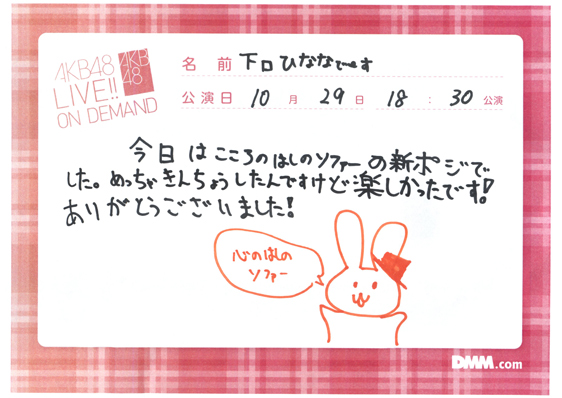 AKB48
LIVE!!
ON DEMAND
AKB
48
名 前 下口ひななでーす
公演日 10 月 29 日 18 : 30 公演
今日はこころのはしのソファーの新ポジで
した。めっちゃきんちょうしたんですけど楽しかったです!
ありがとうございました!
心のはしの
ソファー
DMM.com